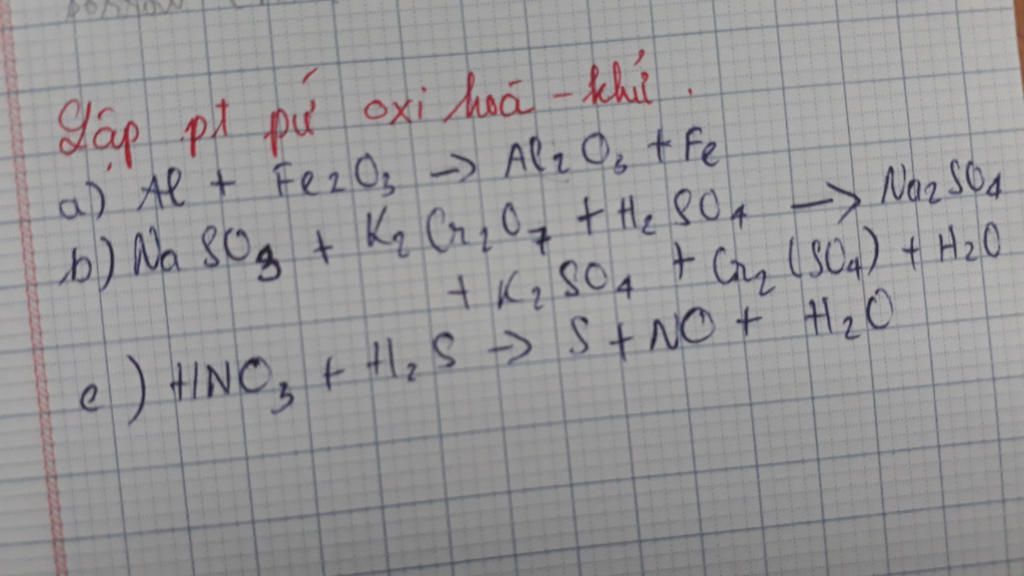 Lập pt pứ oxi hoá - khử.
a) Al + Fe2O3 → Al2O3 + Fe
b) Na SO3 + K2 Cr2O7 + H2 SO4 → Na2SO4
+ K2SO4 + Cr2 (SO4) + H2O
c) HNO3 + H2S → S + NO + H2O